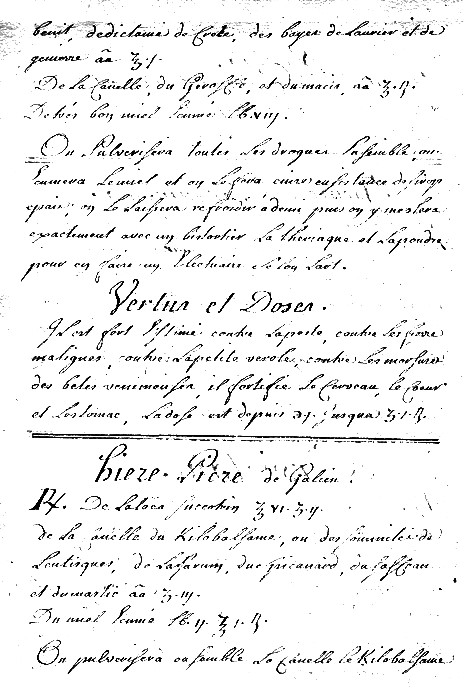 benit, dedictame de Crete, des bayes de Laurier et de
genievre āā ʒ·j·
De la Cañelle, du Giroffle, et du macis, āā ʒ·ß·
De tres bon miel Ecumé lb·viij·
On Pulverisera toutes Les drogues Ensemble, on
Ecumera Le miel et on Le fera cuire en consistance de sirop
epais; on Le Laissera refroidir a demi puis on y meslera
exactement avec un bistortier La theriaque et La poudre
pour en faire un Electuaire selon L'art.
Vertus et Doses.
Il est fort Estimé contre La peste, contre Les fievres
malignes, contre La petite verole, contre Les morsures
des betes venimeuses, il fortifie Le Cerveau, le Coeur
et L'estomac, La dose est depuis ℈j· jusqua ʒ·j·ß·
hiere-Picre de Galien
℞. De L'aloës succotrin ℥vj·ʒ·ij·
de La Cañelle du Xilobalsame, ou des sommités de
Lentisques, de L'asarum, du spicanard, du saffran
et du mastic āā ʒ·iij·
Du miel Ecumé lb·ij· ℥·j·ß·
On pulverisera ensemble La Cañelle le Xilobalsame